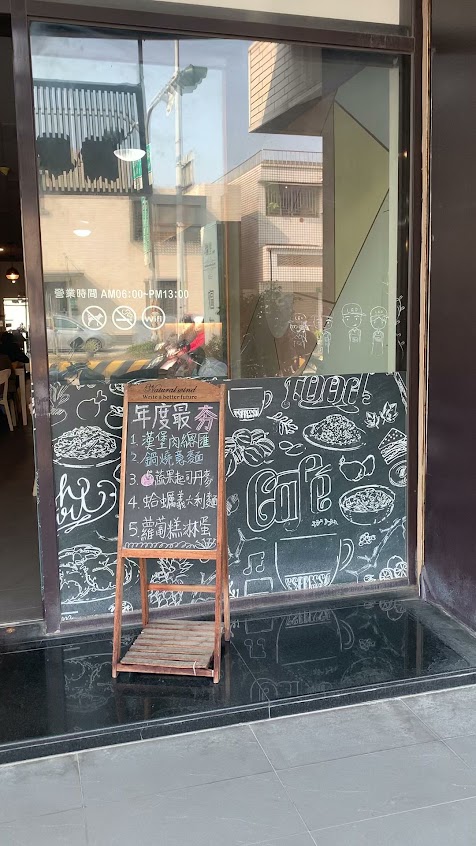 營業時間 AM06:00~PM13:00
wifi
Natural wind
Write a better future
年度最夯
1. 漢堡肉總匯
2. 鍋燒意麵
3. 蔬果起司丹麥
4. 蛤蠣義大利麵
5. 蘿蔔糕淋蛋
ESPRESSO
FOOD!
Café
ESPRESSO